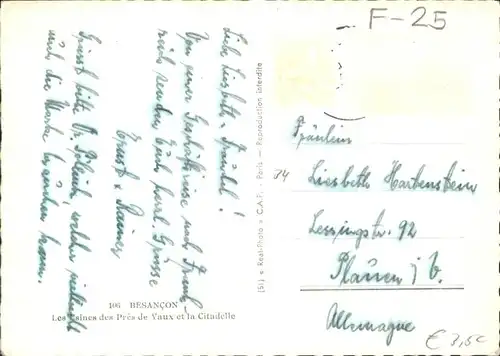 F-25
Liebe Liesbeth, Trudel!
Von einer Geschäftsreise nach Frank-
reich senden Euch herzl. Grüsse
Ernst & Rainer
Grüsst bitte Dr. welcher vielleicht
noch die Marke brauchen kann.
106 BESANÇON
Les Usines des Prés de Vaux et la Citadelle
(51) « Real-Photo » C.A.P. - Paris — Reproduction interdite
Fräulein
Liesbeth Hartenstein
Lessingstr. 92
Plauen i/V.
Allemagne
€ 3,50